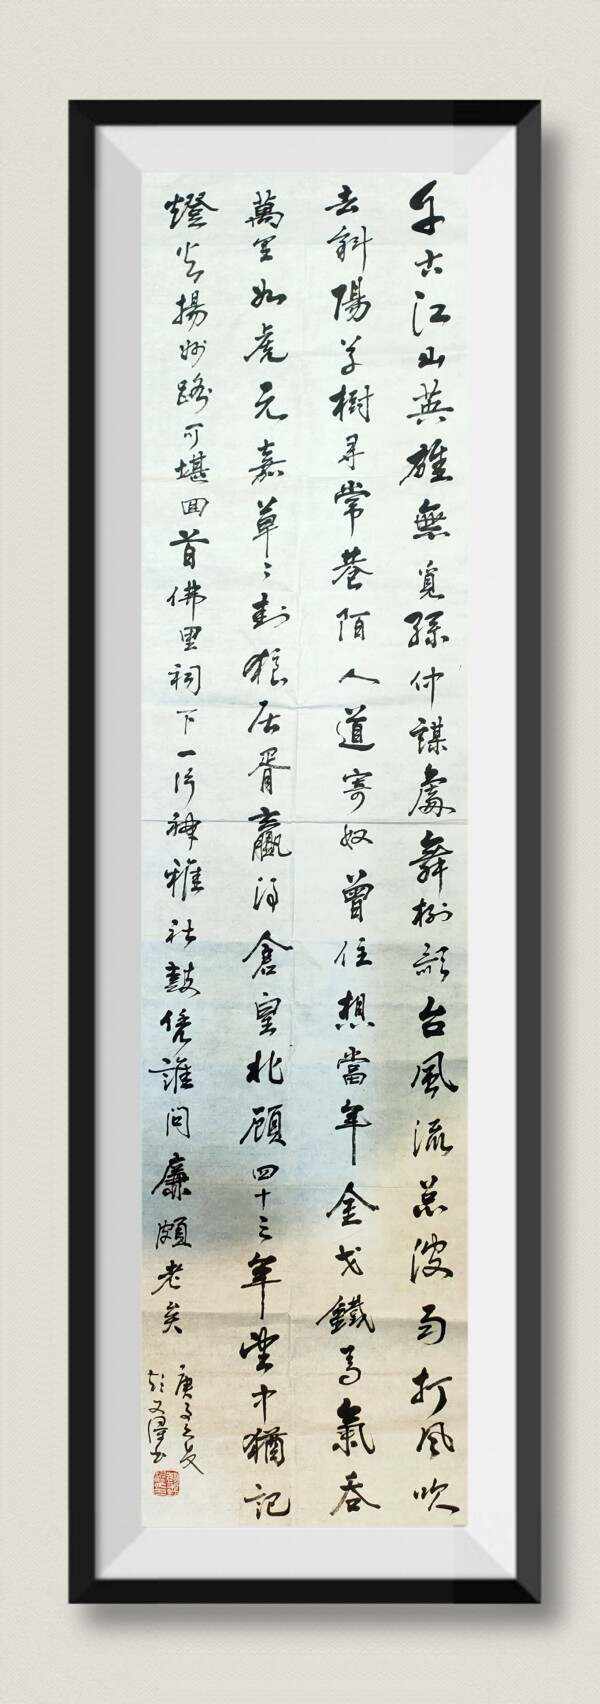 千古江山英雄無覓孫仲謀處舞榭歌台風流总被雨打风吹
去斜陽草樹尋常巷陌人道寄奴曾住想當年金戈鐵馬氣吞
萬里如虎元嘉草々封狼居胥贏得倉皇北顾四十三年望中猶記
燈火揚州路可堪回首佛狸祠下一片神鴉社鼓凭誰问廉頗老矣
庚子之夏